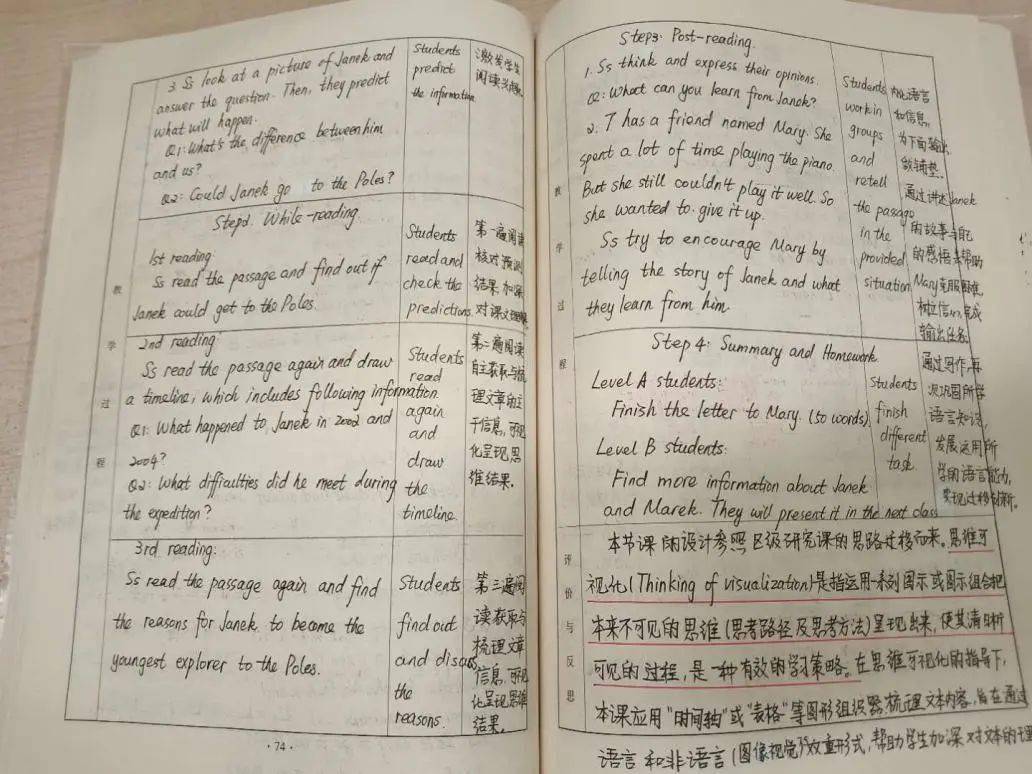 3. Ss look at a picture of Janek and
answer the question. Then, they predict
what will happen.
Q1: What's the difference between him
and us?
Q2: Could Janek go to the Poles?
Students
predict
the information
激发学生
阅读兴趣
教学过程
Step2. While-reading
1st reading
Ss read the passage and find out if
Janek could get to the Poles.
Students
read and
check the
predictions.
第一遍阅读
核对预测
结果,加深
对课文理解
2nd reading:
Ss read the passage again and draw
a timeline, which includes following information
Q1: What happened to Janek in 2002 and
2004?
Q2: What difficulties did he meet during
the expedition?
Students
read
again
and
draw
the
timeline.
第二遍阅读
自主获取与梳
理文章的主
干信息,可视
化呈现思
维结果.
3rd reading:
Ss read the passage again and find
the reasons for Janek to become the
youngest explorer to the Poles.
Students
find out
and discuss
the
reasons.
第三遍阅
读获取与
梳理文章
信息,可视
化呈现思维
结果.
·74·
Step3: Post-reading.
1. Ss think and express their opinions.
Q: What can you learn from Janek?
2. T has a friend named Mary. She
spent a lot of time playing the piano
But she still couldn't play it well. So
she wanted to give it up.
Ss try to encourage Mary by
telling the story of Janek and what
they learn from him.
Students
work in
groups
and
retell
the passage
in the
provided
situation
内化语言
和信息,
为下面输出
做铺垫.
通过讲述Janek
的故事与自己
的感悟来帮助
Mary克服困难
树立信心,完成
输出任务.
教学过程
Step 4: Summary and Homework
Level A students:
Finish the letter to Mary. (50 words)
Level B students:
Find more information about Janek
and Marek. They will present it in the next class
Students
finish
different
task
通过写作,再
次巩固所学
语言知识,
发展运用所
学的语言能力,
实现迁移创新.
评价与反思
本节课的设计参照区级研究课的思路迁移而来。思维可
视化(Thinking of visualization)是指运用一系列图示或图示组合把
本来不可见的思维(思考路径及思考方法)呈现出来,使其清晰
可见的过程,是一种有效的学习策略。在思维可视化的指导下,
本课应用"时间轴"或"表格"等图形组织器梳理文本内容,旨在通过
语言和非语言(图像视觉)双重形式,帮助学生加深对文本的理